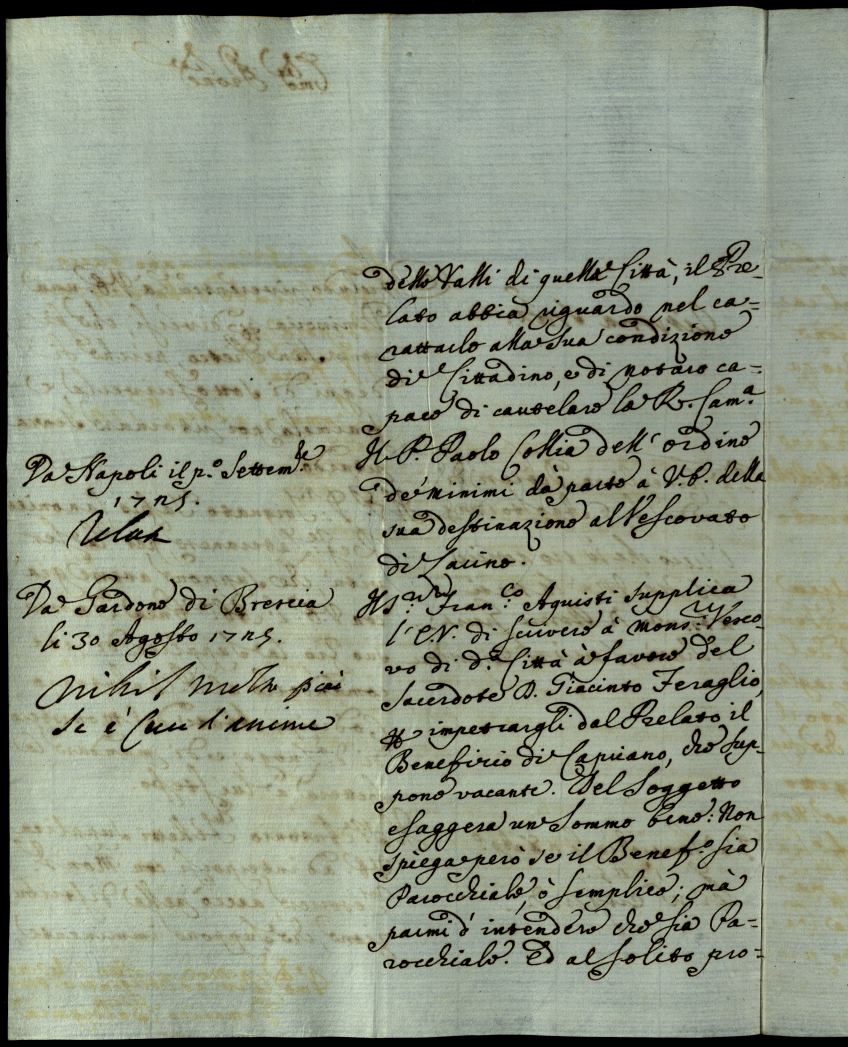 delle Valli di quella Città, il Pre-
lato abbia riguardo nel ca-
rattarlo alla sua condizione
di Cittadino, e di notaro ca-
pace di cautelare la R. Cam.a
Da Napoli il p.o Settem.re
1725.
Il P. Paolo Collia dell' ordine
de' minimi dà parte à V.E. della
sua destinazione al Vescovato
di
Da Gardone di Brescia
li 30 Agosto 1725.
nihil
se è Cura d'anime
Il S.r Fran.co Aquisti supplica
l'E.V. di scrivere à Mons.r Vesco-
vo di d.a Città à favore del
Sacerdote D. Giacinto Feraglio,
impetrargli dal Prelato il
Beneficio di Capriano, che sup-
pone vacante. Del Soggetto
esaggera un sommo bene: Non
spiega però se il Benef.o sia
Parocchiale, ò semplice; mà
parmi d' intendere che sia Pa-
rocchiale. Ed al solito pro-